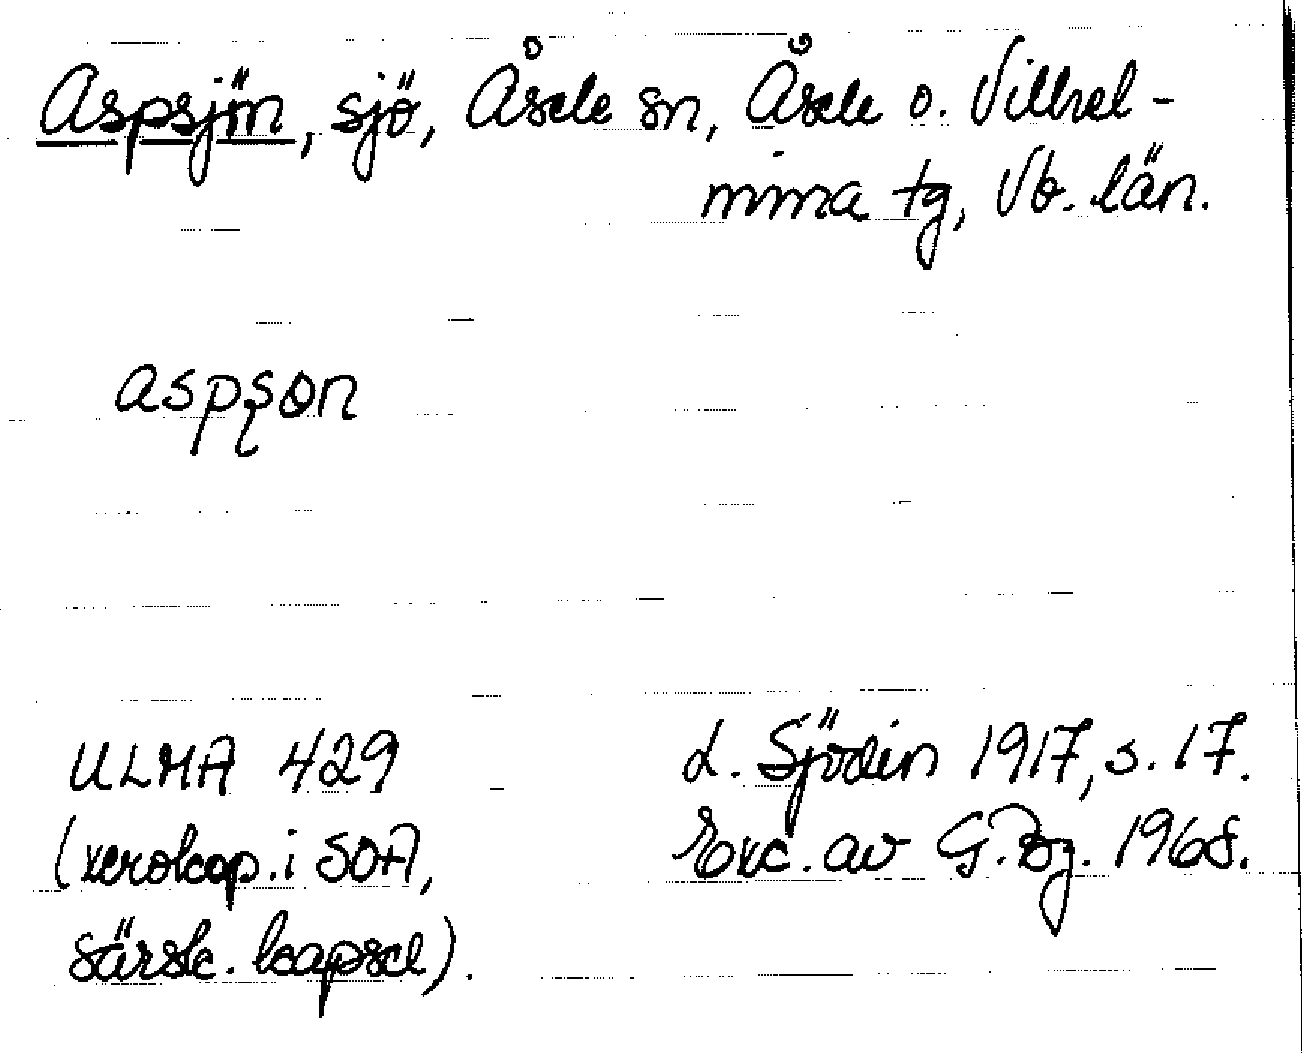 Aspsjön, sjö, Åsele sn, Åsele o. Vilhel-
mina tg, Vb. län.
aspʂɵn
ULMA 429
(xerokop. i SOA,
särsk. kapsel).
L. Sjödin 1917, s. 17.
Exc. av G. Bg. 1968.